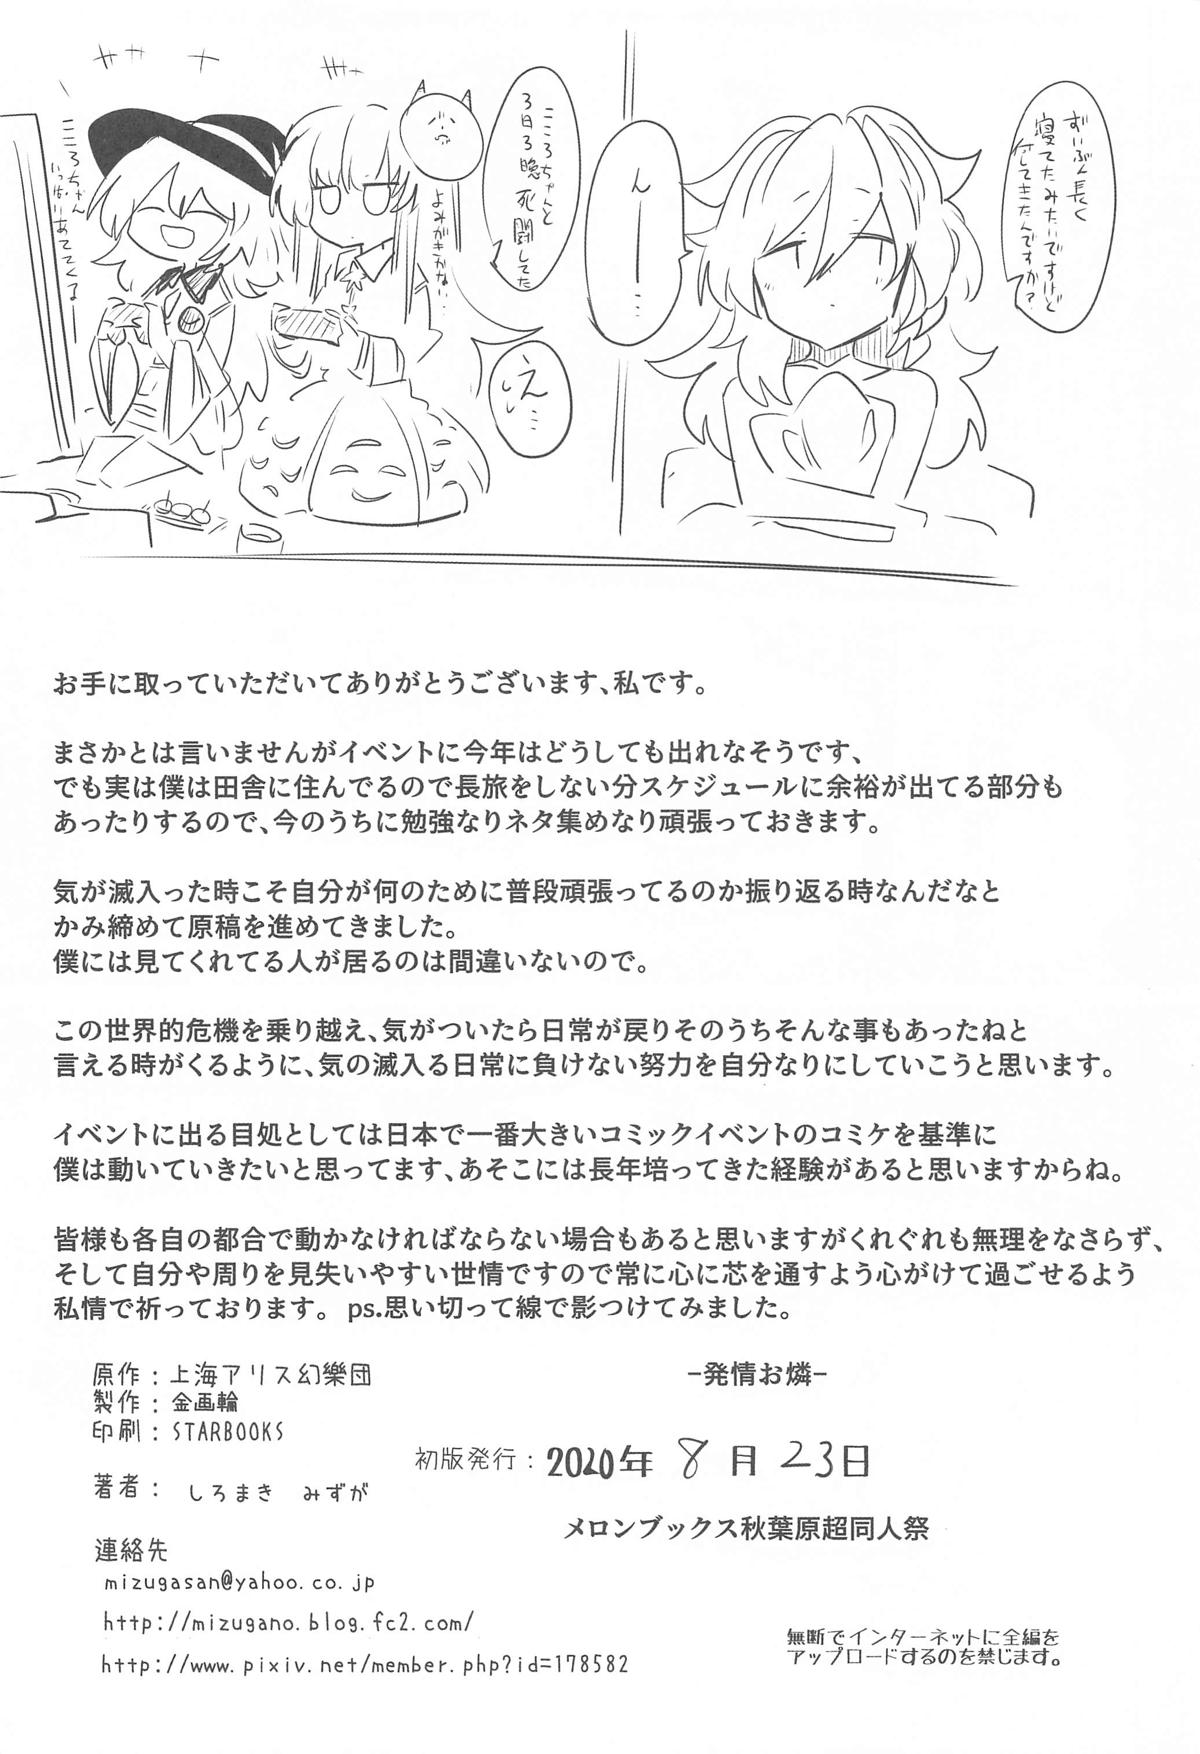 ずいぶん長く
寝てたみたいですけど
何してきたんですか?
ん
ー
…
こころちゃんと
3日3晩死闘してた
え…
よみがきかない…
こころちゃん
いっぱいあててくる
お手に取っていただいてありがとうございます、私です。
まさかとは言いませんがイベントに今年はどうしても出れなそうです、
でも実は僕は田舎に住んでるので長旅をしない分スケジュールに余裕が出てる部分も
あったりするので、今のうちに勉強なりネタ集めなり頑張っておきます。
気が滅入った時こそ自分が何のために普段頑張ってるのか振り返る時なんだなと
かみ締めて原稿を進めてきました。
僕には見てくれてる人が居るのは間違いないので。
この世界的危機を乗り越え、気がついたら日常が戻りそのうちそんな事もあったねと
言える時がくるように、気の滅入る日常に負けない努力を自分なりにしていこうと思います。
イベントに出る目処としては日本で一番大きいコミックイベントのコミケを基準に
僕は動いていきたいと思ってます、あそこには長年培ってきた経験があると思いますからね。
皆様も各自の都合で動かなければならない場合もあると思いますがくれぐれも無理をなさらず、
そして自分や周りを見失いやすい世情ですので常に心に芯を通すよう心がけて過ごせるよう
私情で祈っております。 ps.思い切って線で影つけてみました。
原作：上海アリス幻樂団
製作：金画輪
印刷：STARBOOKS
著者： しろまき みずが
連絡先
mizugasan@yahoo.co.jp
http://mizugano.blog.fc2.com/
http://www.pixiv.net/member.php?id=178582
-発情お燐-
初版発行：2020年 8月 23日
メロンブックス秋葉原超同人祭
無断でインターネットに全編を
アップロードするのを禁じます。